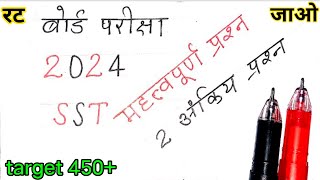 रट
जाओ
बोर्ड परीक्षा
2024
SST
महत्वपूर्ण प्रश्न
2 अंकिय प्रश्न
target 450+